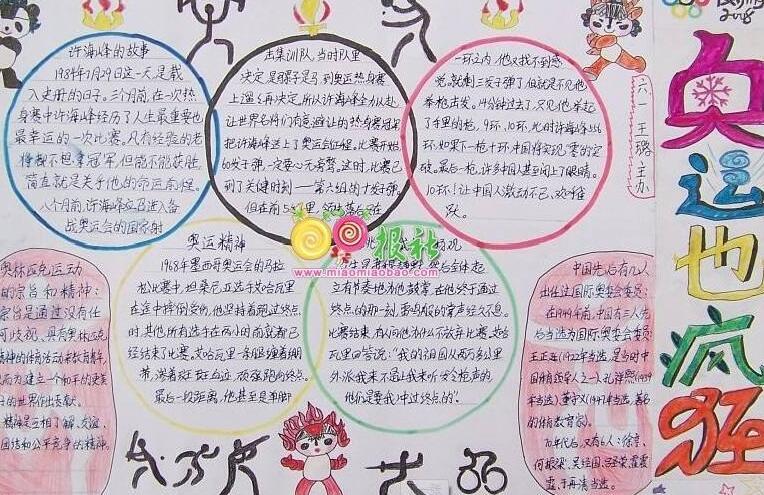 许海峰的故事
1984年7月29日这一天是载
入史册的日子。三个月前,在一次热
身赛中许海峰经历了人生最重要也
最幸运的一次比赛。凡有经验的老
将我不担拿冠军,但能不能获胜,
简直就是关乎他的命运前程。
八个月前,许海峰应召进入备
战奥运会的国家射
击集训队,当时队里
决定,是骡子是马,到奥运热身赛
上遛遛再决定,所以许海峰全力以赴,
让世界名将们有意避让的热身赛冠军
把许海峰送上了奥运会征程。比赛开始
60发子弹,一定要心无旁骛。这时,比赛已
到了关键时刻——第六组的十发子弹。
但在前5
一环之内,他又找不到感
觉,就剩三发子弹了,但就是不见他
举枪击发。14分钟过去了,只见他举起
了手里的枪。9环、10环,此时许海峰
环,如果下一枪十环中国将实现"零的突
破。最后一枪,许多中国人甚至闭上了眼睛。
10环!让中国人激动不已,欢呼雀
跃。
六一 王璐 主办
2008
奥运也疯狂
报社
www.miaomiaobao.com
奥运精神
1968年墨西哥奥运会的马拉
松比赛中,坦桑尼亚选手艾哈瓦里
在途中摔倒受伤,他坚持着跑过终点
时,其他所有选手在两小时前就都已
经结束了比赛。艾哈瓦里一条腿缠着绷
带,淌着斑斑血迹,顽强跑向终点。
最后一段距离,他甚至是单脚
立有节奏地为他鼓掌,在他终于通过
终点的那一刻,雷鸣般的掌声经久不息。
比赛结束,有人问他为什么不放弃比赛。艾哈
瓦里回答说:"我的祖国从两万多公里
外派我来不是让我来听发令枪声的,
他们是要我冲过终点的"。
奥林匹克运动
的宗旨和精神:
宗旨是通过没有任
何歧视、具有奥林匹克
精神的体育活动来教育青年,
从而为建立一个和平的更美
好的世界作出贡献。
精神是互相了解、友谊、
团结和公平竞争的精神。
中国先后有几人
出任过国际奥委会委员:
在1949年前,中国有三人先
后当选为国际奥委会委员:
王正廷(1922年当选,是当时中
国体育领导人之一)、孔祥熙(1939
年当选)、董守义(1947年当选,著名
的体育教育家)。
70年代后,又有6人:徐亨、
何振梁、吴经国、吕圣荣
、于再清当选。